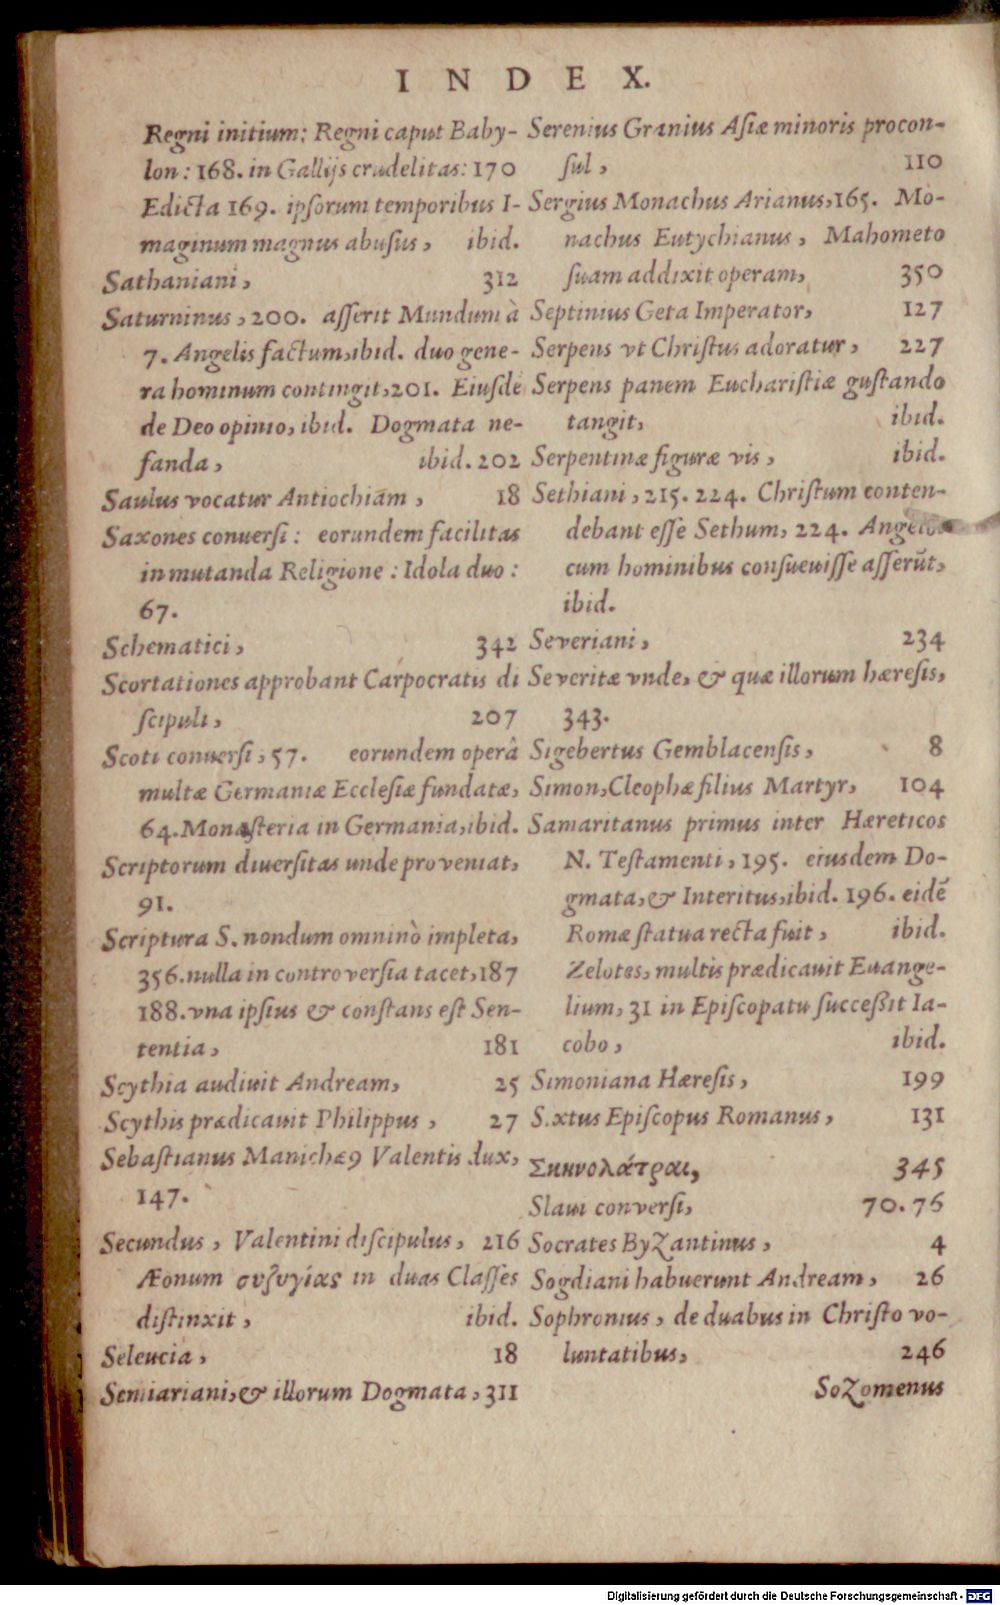 INDEX.
Regni initium: Regni caput Baby-
lon: 168. in Gallijs crudelitas: 170
Edicta 169. ipsorum temporibus I-
maginum magnus abusus, ibid.
Sathaniani, 312
Saturninus, 200. asserit Mundum à
7. Angelis factum, ibid. duo gene-
ra hominum contingit, 201. Eiusdē
de Deo opinio, ibid. Dogmata ne-
fanda, ibid. 202
Saulus vocatur Antiochiam, 18
Saxones conuersi: eorundem facilitas
in mutanda Religione: Idola duo:
67.
Schematici, 342
Scortationes approbant Carpocratis di
scipuli, 207
Scoti conuersi, 57. eorundem operâ
multæ Germaniæ Ecclesiæ fundatæ,
64. Monasteria in Germania, ibid.
Scriptorum diuersitas unde proveniat,
91.
Scriptura S. nondum omninò impleta,
356. nulla in controversia tacet, 187
188. vna ipsius & constans est Sen-
tentia, 181
Scythia audiuit Andream, 25
Scythis prædicauit Philippus, 27
Sebastianus Manichæ9 Valentis dux,
147.
Secundus, Valentini discipulus, 216
Æonum συζυγίας in duas Classes
distinxit, ibid.
Seleucia, 18
Semiariani, & illorum Dogmata, 311
Serenius Granius Asiæ minoris procon-
sul, 110
Sergius Monachus Arianus, 165. Mo-
nachus Eutychianus, Mahometo
suam addixit operam, 350
Septinius Geta Imperator, 127
Serpens vt Christus adoratur, 227
Serpens panem Eucharistiæ gustando
tangit, ibid.
Serpentinæ figuræ vis, ibid.
Sethiani, 215. 224. Christum conten-
debant esse Sethum, 224. Angelos
cum hominibus consuevisse asserūt,
ibid.
Severiani, 234
Severitæ vnde, & quæ illorum hæresis,
343.
Sigebertus Gemblacensis, 8
Simon, Cleophæ filius Martyr, 104
Samaritanus primus inter Hæreticos
N. Testamenti, 195. eiusdem Do-
gmata, & Interitus, ibid. 196. eidē
Romæ statua recta fuit, ibid.
Zelotes, multis prædicauit Euange-
lium, 31 in Episcopatu successit Ia-
cobo, ibid.
Simoniana Hæresis, 199
S.xtus Episcopus Romanus, 131
Σκηνολάτραι, 345
Slaui conversi, 70. 76
Socrates Byzantinus, 4
Sogdiani habuerunt Andream, 26
Sophronius, de duabus in Christo vo-
luntatibus, 246
Sozomenus
Digitalisierung gefördert durch die Deutsche Forschungsgemeinschaft - DFG